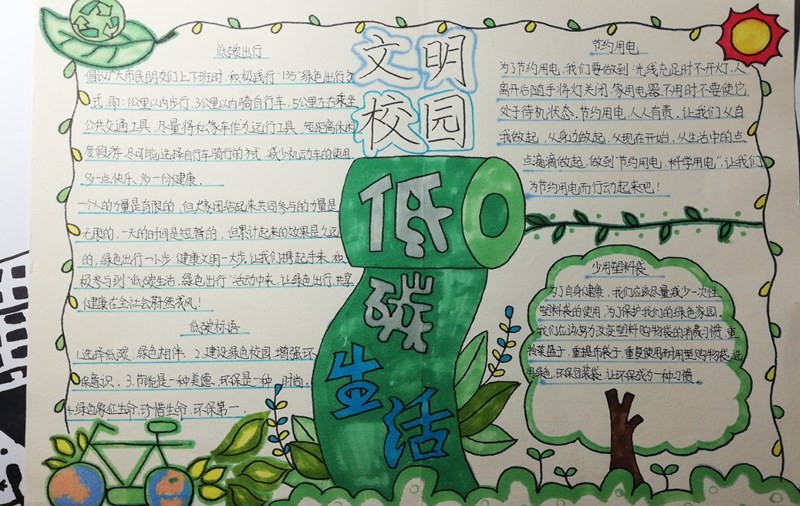 文明
校园
低碳生活
低碳出行
倡议广大市民朋友们上下班时,积极践行"135"绿色出行方
式,即:1公里以内步行,3公里以内骑自行车,5公里左右乘坐
公共交通工具,尽量将私家车作为远行工具,短距离休闲
度假游,尽可能选择自行车骑行的方式,减少机动车的使用
多一点快乐,多一份健康。
一个人的力量是有限的,但大家团结起来共同参与的力量是
无限的,一天的时间是短暂的,但累计起来的效果是久远
的,绿色出行一小步,健康文明一大步,让我们携起手来,积
极参与到"低碳生活,绿色出行"活动中来,让绿色出行,共享
健康在全社会蔚然成风!
低碳标语
1.选择低碳,绿色相伴 2.建设绿色校园,增强环
保意识。3.节能是一种美德,环保是一种时尚。
4.绿色象征生命,珍惜生命,环保第一。
节约用电
为了节约用电,我们要做到:光线充足时不开灯,人
离开后随手将灯关闭,家用电器不用时不要使它
处于待机状态。节约用电,人人有责,让我们从自
我做起,从身边做起,从现在开始,从生活中的点
点滴滴做起,做到"节约用电,科学用电",让我们
为节约用电而行动起来吧!
少用塑料袋
为了自身健康,我们应该尽量减少一次性
塑料袋的使用,为了保护我们的绿色家园。
我们应该努力改变塑料购物袋的消费习惯,重
拾菜篮子,重提布袋子,重复使用耐用型购物袋,选
用绿色,环保包装袋,让环保成为一种习惯。